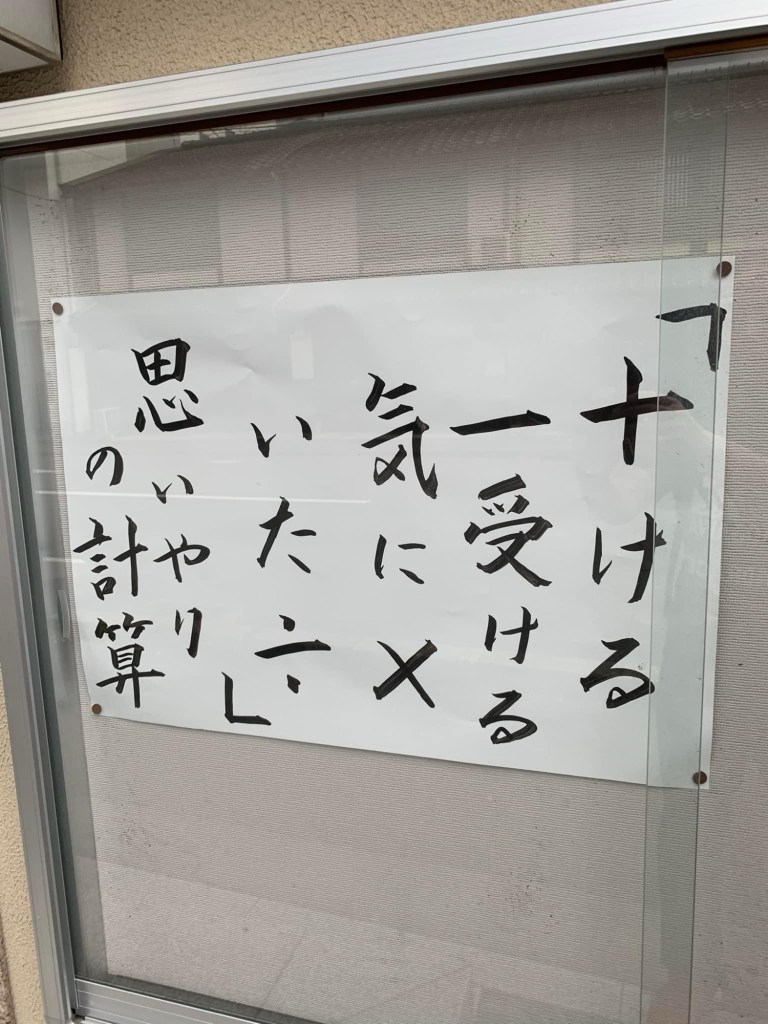 「十ける
一受ける
気に×
いた÷」
思いやり
の計算